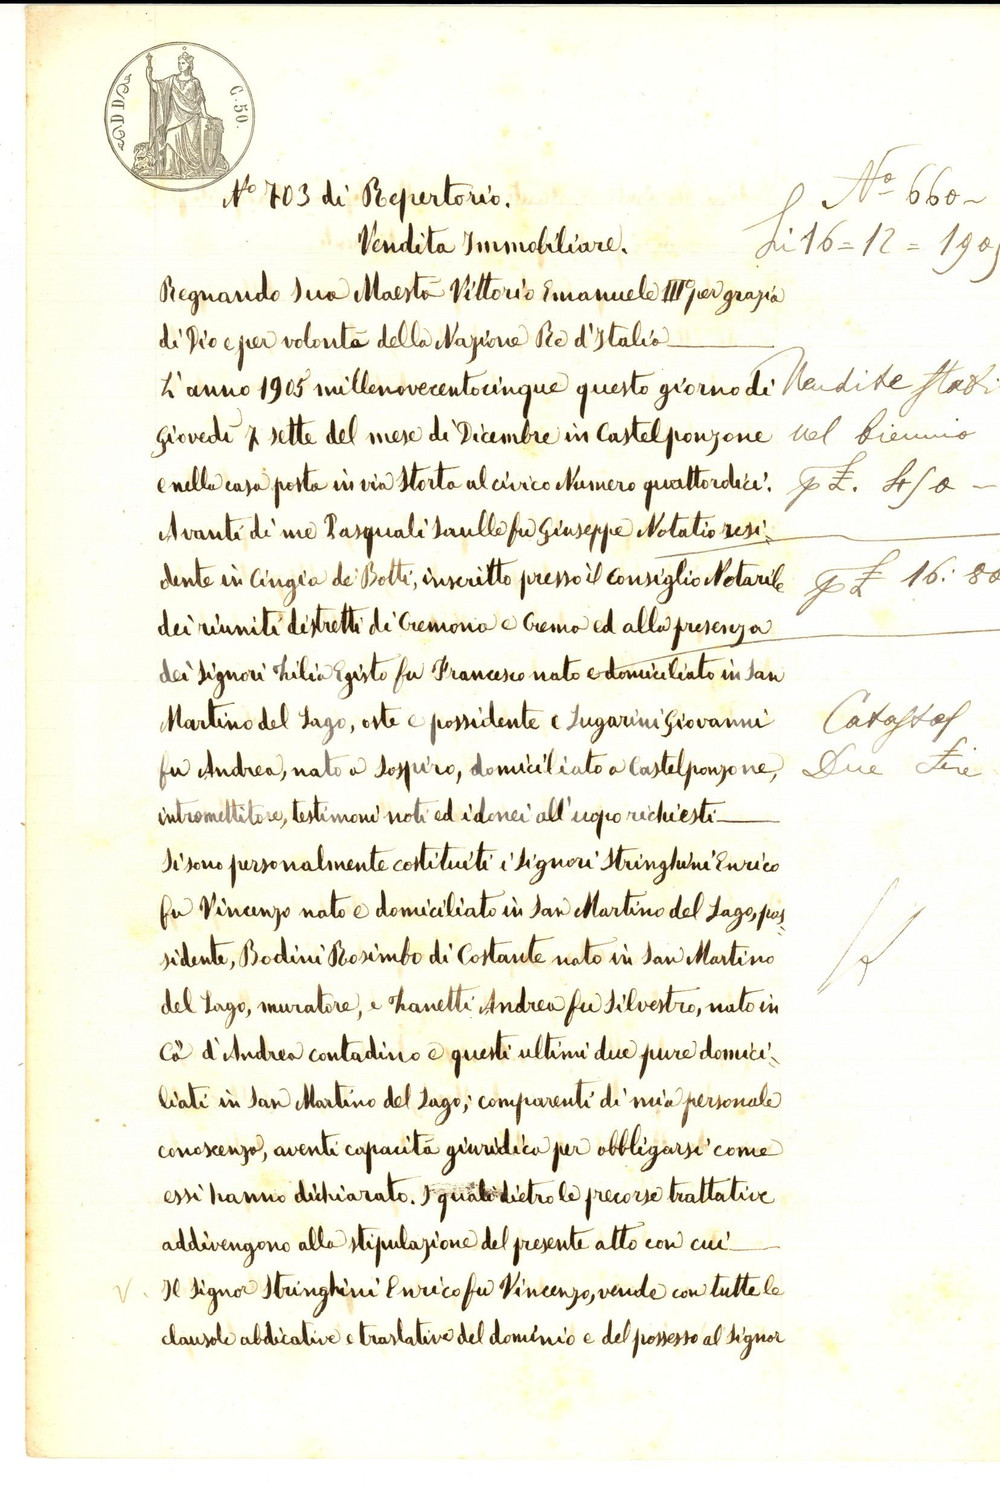 DD
C. 50.
N° 703 di Repertorio.
N° 660
Vendita Immobiliare.
Li 16 = 12 = 190
Regnando Sua Maestà Vittorio Emanuele III° per grazia
di Dio e per volontà della Nazione Re d'Italia
L'anno 1905 millenovecentocinque questo giorno di
Giovedì 7 sette del mese di Dicembre in Castelponzone
e nella casa posta in via Storta al civico Numero quattordici.
Avanti di me Pasquali Saulle fu Giuseppe Notaio resi-
dente in Cingia de' Botti, inscritto presso il Consiglio Notarile
dei riuniti distretti di Cremona e Crema ed alla presenza
dei Signori Zilia Egisto fu Francesco nato e domiciliato in San
Martino del Lago, oste e possidente e Lugarini Giovanni
fu Andrea, nato a Sospiro, domiciliato a Castelponzone,
intromettitore, testimoni noti ed idonei all'uopo richiesti
Si sono personalmente costituiti i Signori Stringhini Enrico
fu Vincenzo nato e domiciliato in San Martino del Lago, pos-
sidente, Bodini Rosimbo di Costante nato in San Martino
del Lago, muratore, e Zanetti Andrea fu Silvestro, nato in
Cà d'Andrea contadino e questi ultimi due pure domici-
liati in San Martino del Lago; comparenti di mia personale
conoscenza, aventi capacità giuridica per obbligarsi come
essi hanno dichiarato. I quali dietro le precorse trattative
addivengono alla stipulazione del presente atto con cui
Il Signor Stringhini Enrico fu Vincenzo, vende con tutte le
clausole abdicative e traslative del dominio e del possesso al Signor
Vendite
nel biennio
£.
£ 16: 80
Due Lire